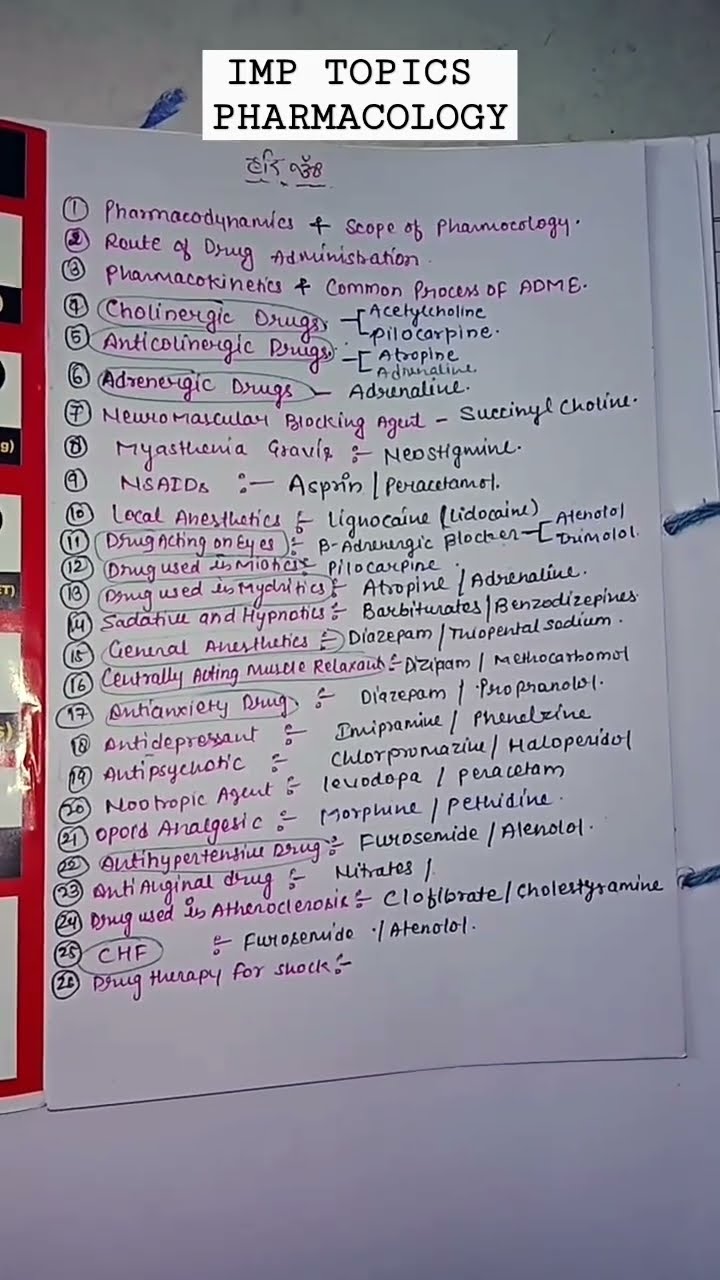 IMP TOPICS
PHARMACOLOGY
① Pharmacodynamics & Scope of Pharmocology.
② Route of Drug Administration.
③ Pharmacokinetics & Common Process OF ADME.
④ Cholinergic Drugs - Acetylcholine
Pilocarpine.
⑤ Anticolinergic Drugs - Atropine
Adrenaline.
⑥ Adrenergic Drugs - Adrenaline.
⑦ Neuromascular Blocking Agent - Succinyl Choline.
⑧ Myasthenia Gravis :- Neostigmine.
⑨ NSAIDs :- Asprin / Peracetamol.
⑩ Local Anesthetics :- Lignocaine (Lidocaine)
⑪ Drug Acting on Eyes :- β-Adrenergic Blocker - Atenolol
Trimolol.
⑫ Drug used in Miotics :- Pilocarpine.
⑬ Drug used in Mydritics :- Atropine / Adrenaline.
⑭ Sadative and Hypnotics :- Barbiturates / Benzodizepines.
⑮ General Anesthetics :- Diazepam / Thiopental sodium.
⑯ Centrally Acting Muscle Relaxant :- Dizipam / Methocarbomol
⑰ Antianxiety Drug :- Diazepam / Propranolol.
⑱ Antidepressant :- Imipramine / Phenelzine
⑲ Antipsychotic :- Chlorpromazine / Haloperidol
⑳ Nootropic Agent :- levodopa / peracetam
㉑ opord Analgesic :- Morphine / Pethidine.
㉒ Antihypertensive Drug :- Furosemide / Atenolol.
㉓ Anti Auginal drug :- Nitrates /
㉔ Drug used in Atheroclerosis :- Clofibrate / Cholestyramine
㉕ CHF :- Furosemide / Atenolol.
㉖ Drug therapy for shock :-